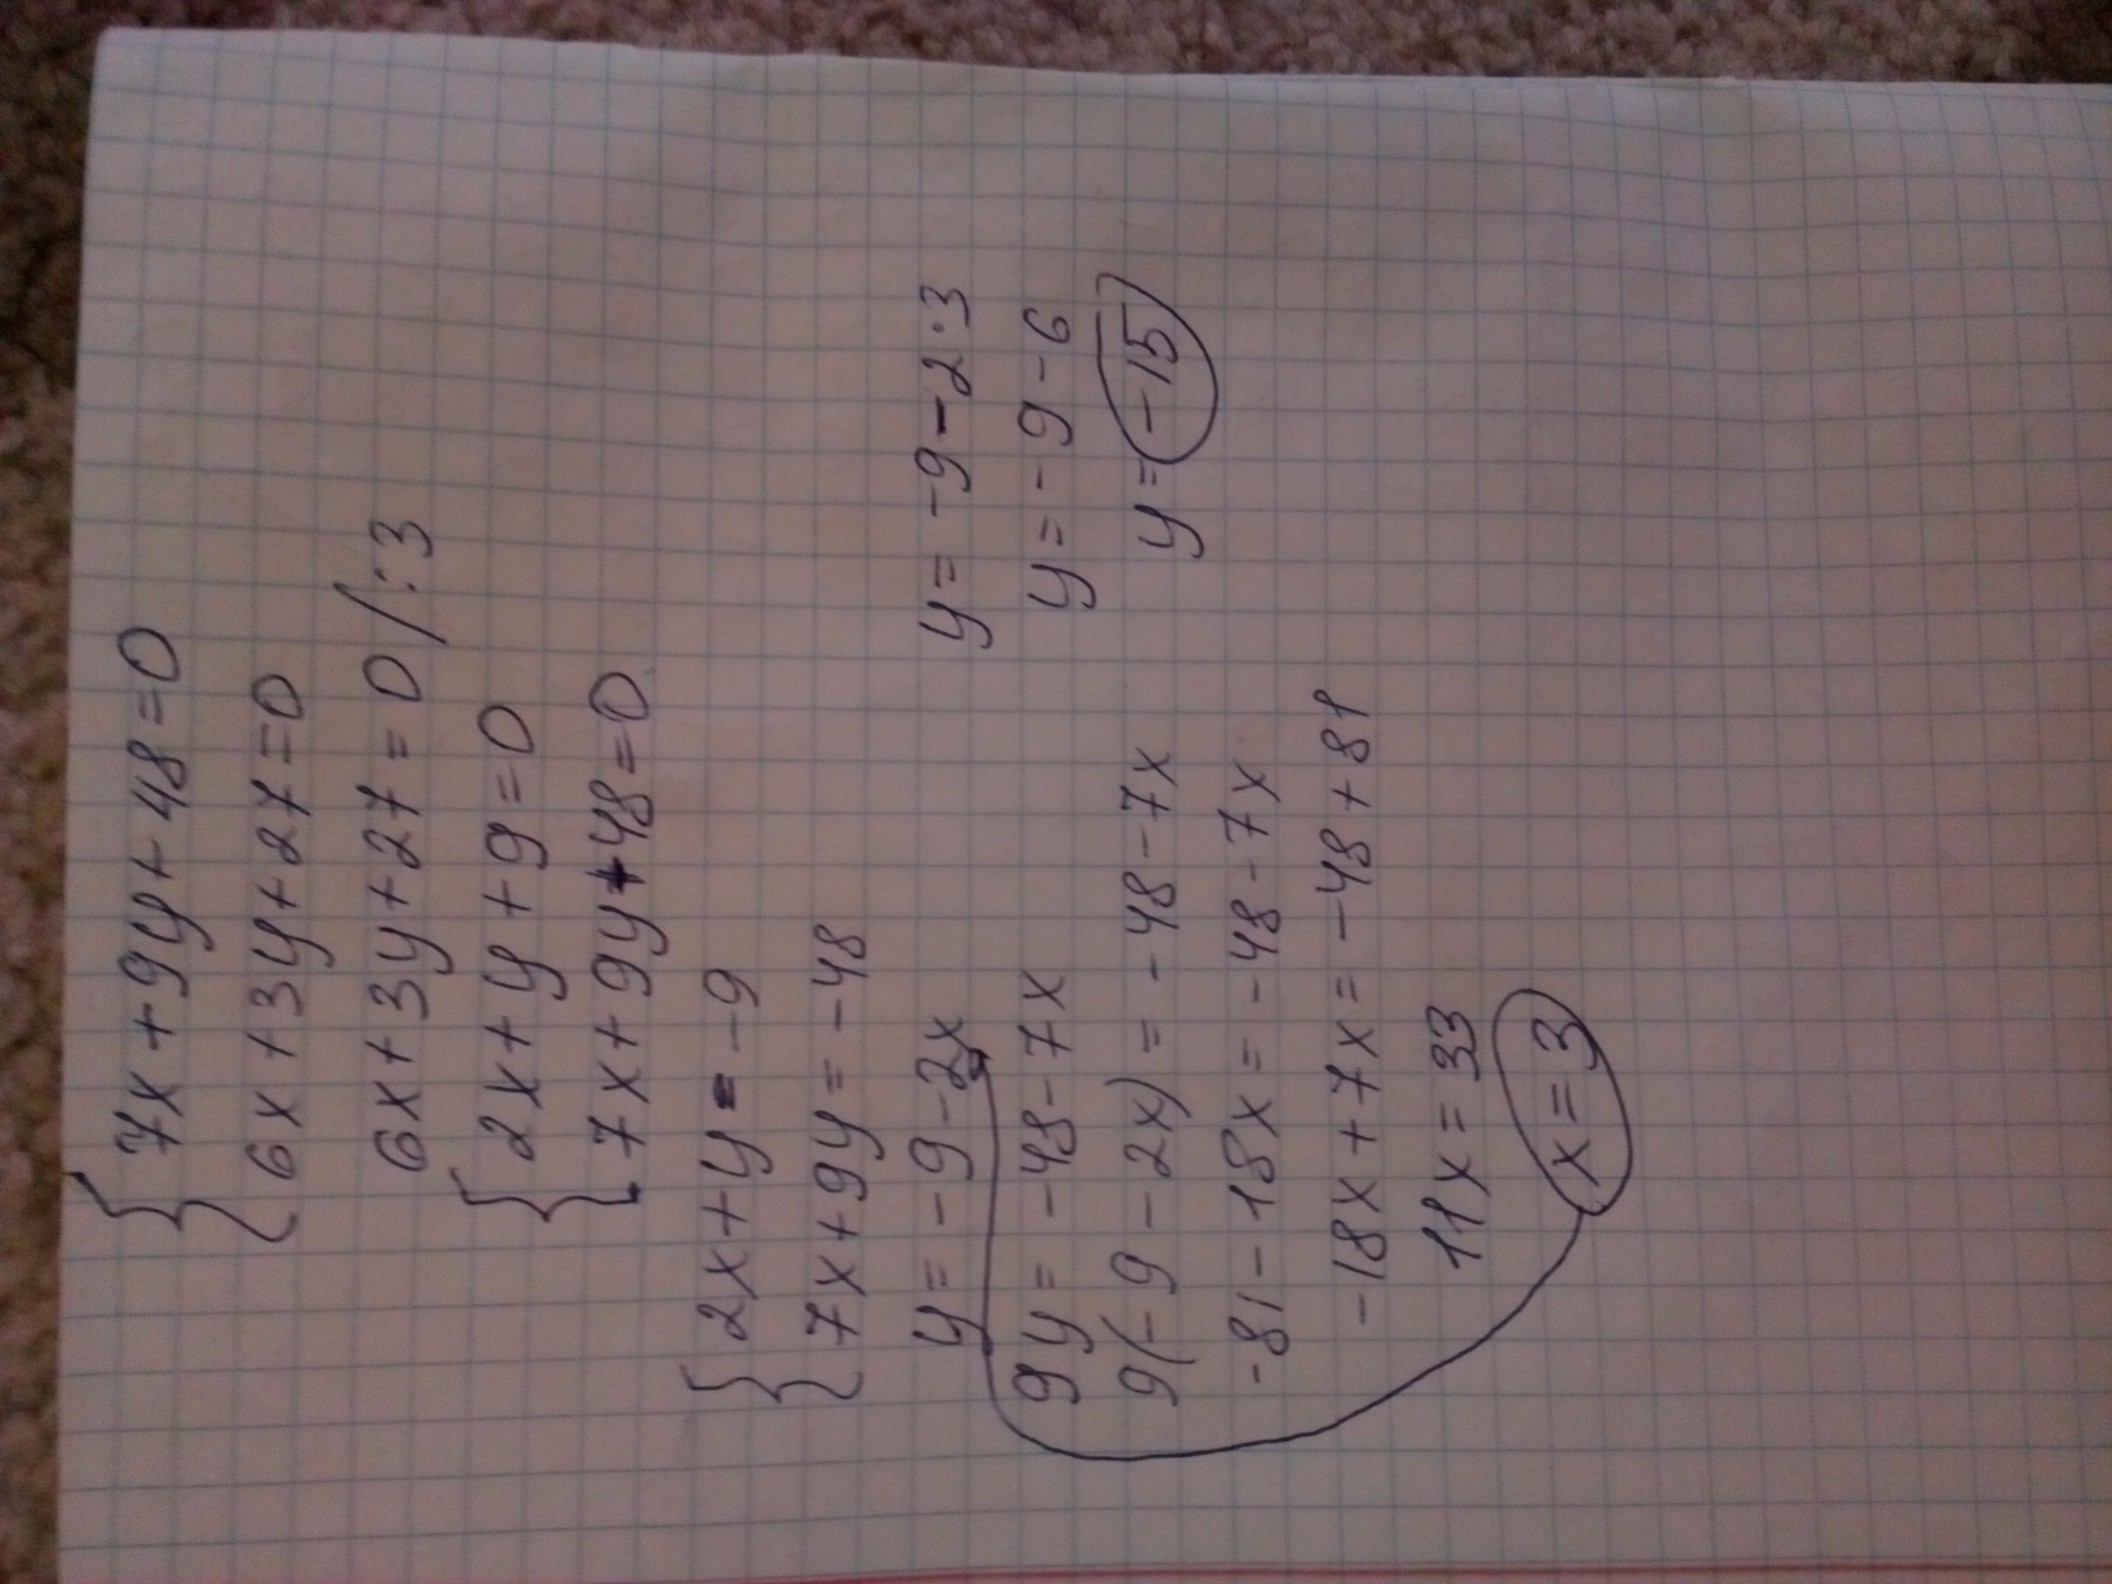 7x + 9y + 48 = 0
6x + 3y + 27 = 0
6x + 3y + 27 = 0 / : 3
2x + y + 9 = 0
7x + 9y + 48 = 0
2x + y = -9
7x + 9y = -48
y = -9 - 2x
9y = -48 - 7x
9(-9 - 2x) = -48 - 7x
-81 - 18x = -48 - 7x
-18x + 7x = -48 + 81
11x = 33
x = 3
y = -9 - 2 · 3
y = -9 - 6
y = -15